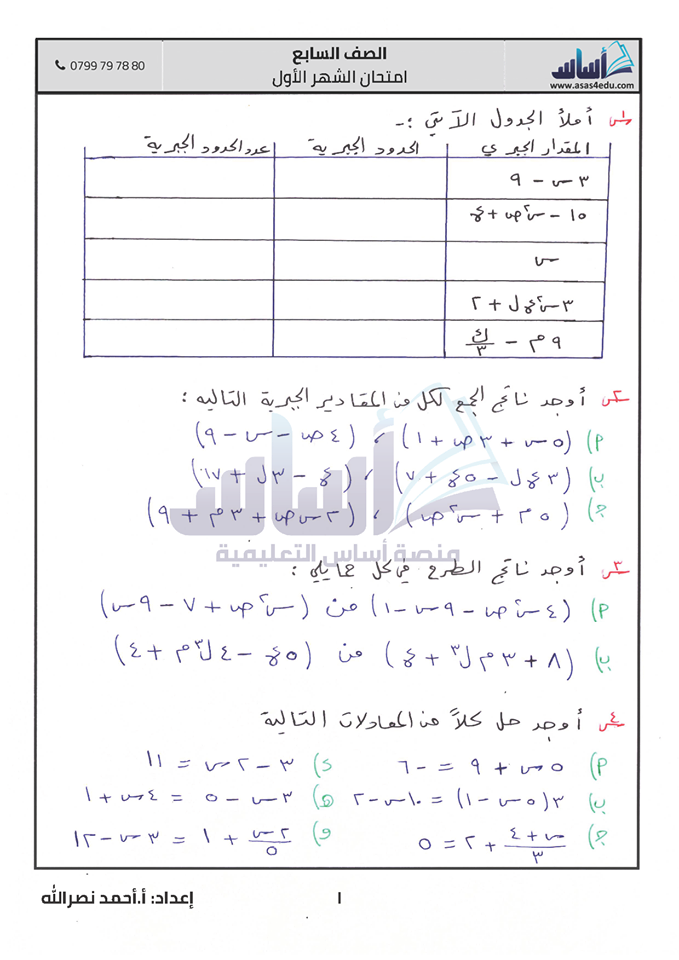 أساس
www.asas4edu.com
الصف السابع
امتحان الشهر الأول
0799 79 78 80
س١ أملأ الجدول الآتي :-
المقدار الجبري | الحدود الجبرية | عدد الحدود الجبرية
٣س - ٩
١٥ - س²ص + ع
س
٣س²ع ل + ٢
٩م - ك/٣
س٢ أوجد ناتج الجمع لكل من المقادير الجبرية التالية :
أ) (٥س + ٣ص + ١) ، (٤ص - س - ٩)
ب) (٣ع ل - ٥ع + ٧) ، (ع - ٣ل + ١٧)
ج) (٥م + س²ص) ، (٢س ص + ٣م + ٩)
أساس
منصة أساس التعليمية
س٣ أوجد ناتج الطرح في كل مما يلي :
أ) (٤س²ص - ٩س - ١) من (س²ص + ٧ - ٩س)
ب) (٨ + ٣م ل³ + ع) من (٥ع - ٤ل³م + ٤)
س٤ أوجد حل كلاً من المعادلات التالية
أ) ٥ص + ٩ = -٦
د) ٣ - ٢س = ١١
ب) ٣(٥س - ١) = ١٠س - ٢
هـ) ٣س - ٥ = ٤س + ١
ج) (ص + ٤)/٣ + ٢ = ٥
و) ٢س/٥ + ١ = ٣س - ١٢
١
إعداد: أ.أحمد نصرالله